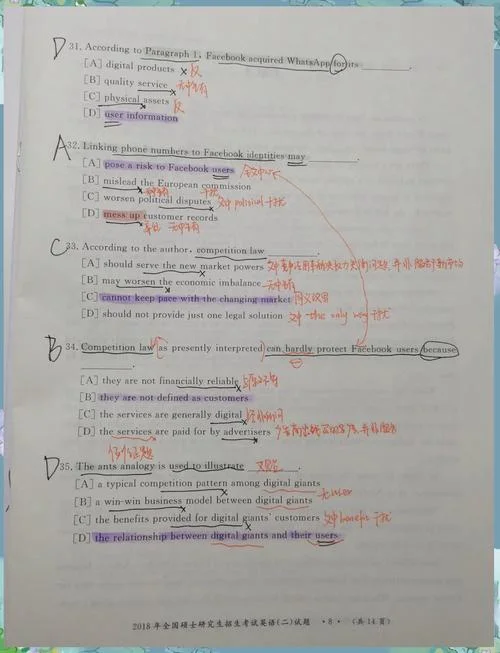 D 31. According to Paragraph 1, Facebook acquired WhatsApp for its ________.
[A] digital products × 反
[B] quality service ×
[C] physical assets × 反
[D] user information
A 32. Linking phone numbers to Facebook identities may ________.
[A] pose a risk to Facebook users
[B] mislead the European commission
[C] worsen political disputes × 文中political干扰
[D] mess up customer records
C 33. According to the author, competition law ________.
[A] should serve the new market powers
[B] may worsen the economic imbalance
[C] cannot keep pace with the changing market 同义改写
[D] should not provide just one legal solution 文中 the only way 干扰
B 34. Competition law (as presently interpreted) can hardly protect Facebook users because
________.
[A] they are not financially reliable ×
[B] they are not defined as customers
[C] the services are generally digital ×
[D] the services are paid for by advertisers
例证题
D 35. The ants analogy is used to illustrate ________.
[A] a typical competition pattern among digital giants
[B] a win-win business model between digital giants
[C] the benefits provided for digital giants' customers 文中benefit 干扰
[D] the relationship between digital giants and their users
2018 年全国硕士研究生招生考试英语(二)试题 · 8 · (共 14 页)